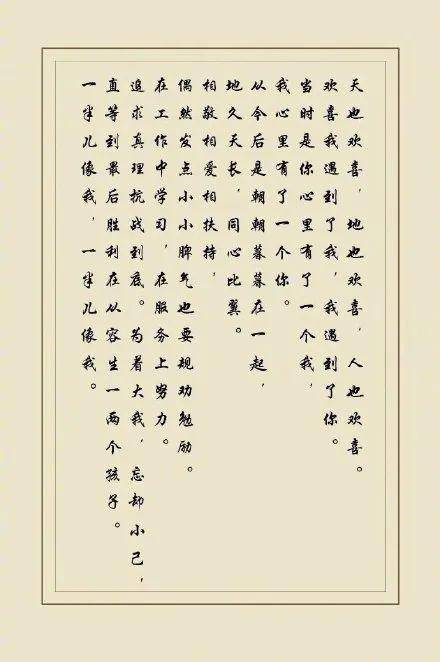 天也欢喜，地也欢喜，人也欢喜。
欢喜我遇到了我，我遇到了你。
当时是你心里有了一个我，
我心里有了一个你。
从今后是朝朝暮暮在一起，
地久天长，同心比翼。
相敬相爱相扶持，
偶然发点小小脾气也要规劝勉励。
在工作中学习，在服务上努力。
追求真理抗战到底。为着大我，忘却小己，
直等到最后胜利在从容生一两个孩子。
一半儿像我，一半儿像我。